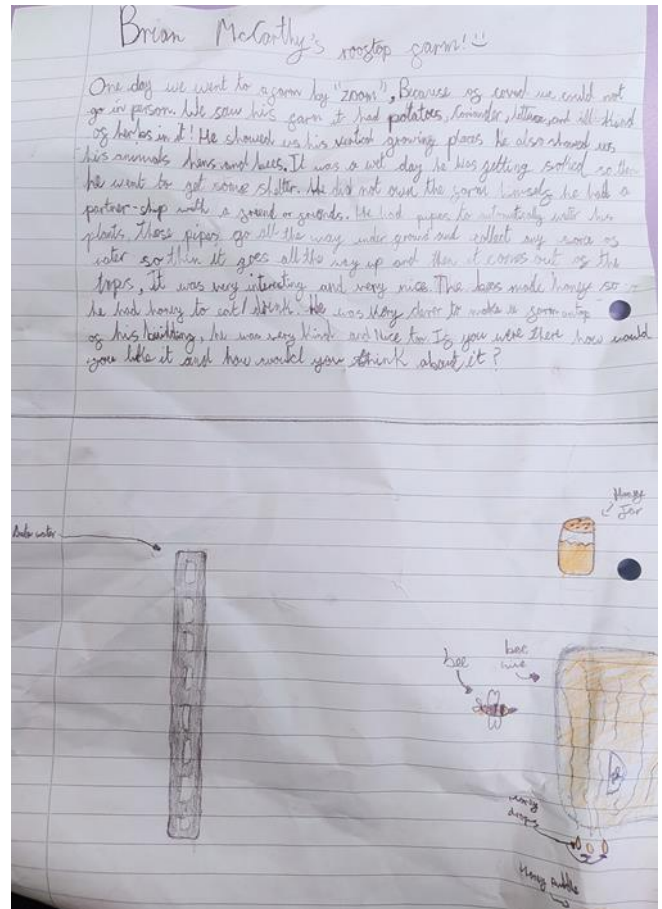 Brian McCarthy's rooftop farm!
One day we went to a farm by "zoom", Because of covid we could not
go in person. We saw his farm it had potatoes, Coriander, lettuce, and all-kind
of herbs in it! He showed us his vertical growing places he also showed us
his animals hens and bees. It was a wet day he was getting soaked so then
he went to get some shelter. He did not own the farm himself he had a
partner-ship with a friend or friends. He had pipes to water his
plants. These pipes go all the way under ground and collect any of
water so then it goes all the way up and then it comes out of the
. It was very interesting and very nice. The bees made honey so
he had honey to eat/drink. He was very clever to make a farm ontop
of his building, he was very kind and Nice too. If you were there how would
you like it and how would you think about it?
Honey
Jar
water
bee
bee
hive
honey
drops
Honey puddle